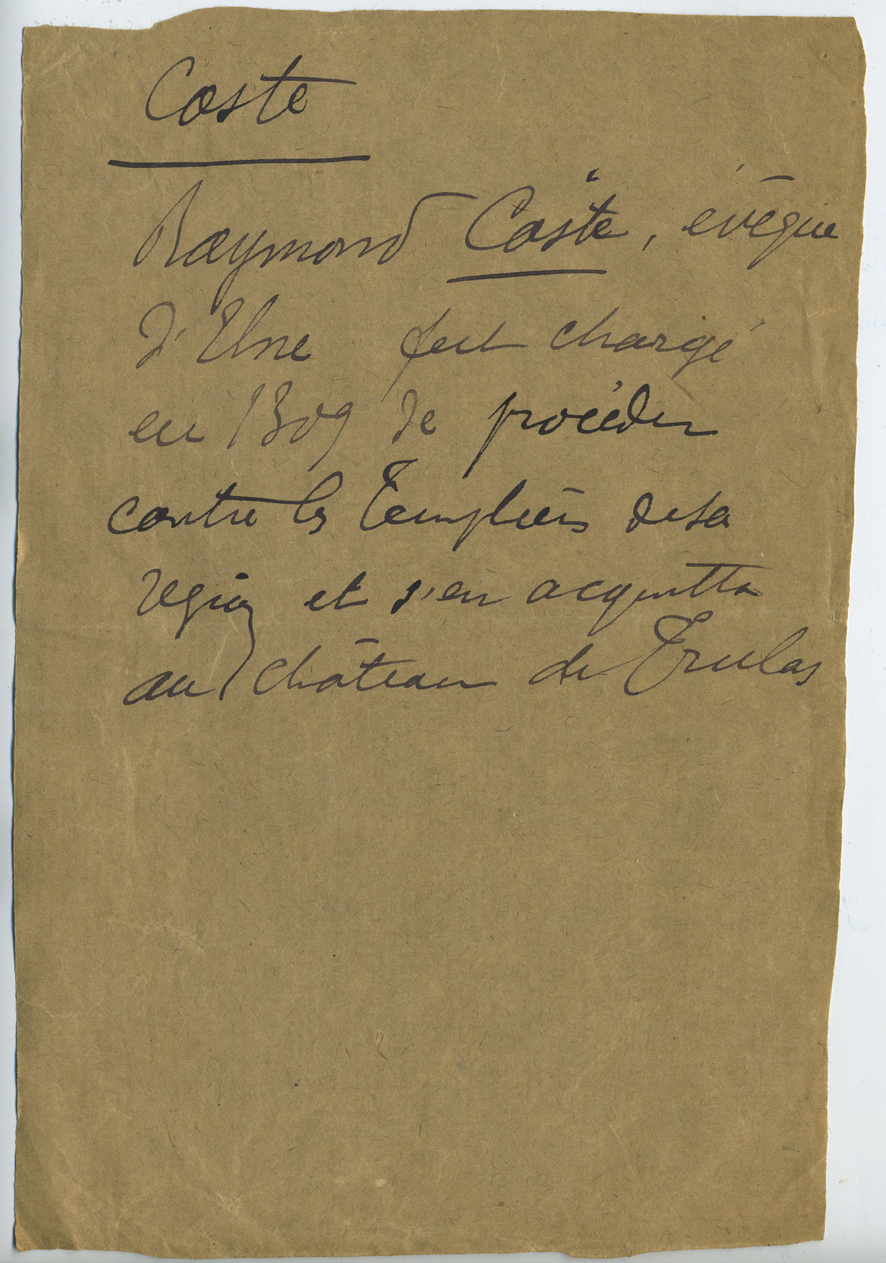 Coste
Raymond Coste, évêque
d'Elne fut chargé
en 1309 de procéder
contre les Templiers de sa
région et s'en acquitta
au château de Trulas